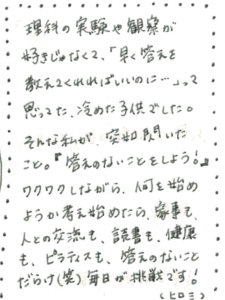 理科の実験や観察が
好きじゃなくて、「早く答えを
教えてくれればいいのに…」って
思ってた、冷めた子供でした。
そんな私が、突如閃いた
こと。『答えのないことをしよう!』
ワクワクしながら、何を始め
ようか考え始めたら、家事も、
人との交流も、読書も、健康
も、ピラティスも、答えのないこと
だらけ(笑)毎日が挑戦です!
(ヒロミ)